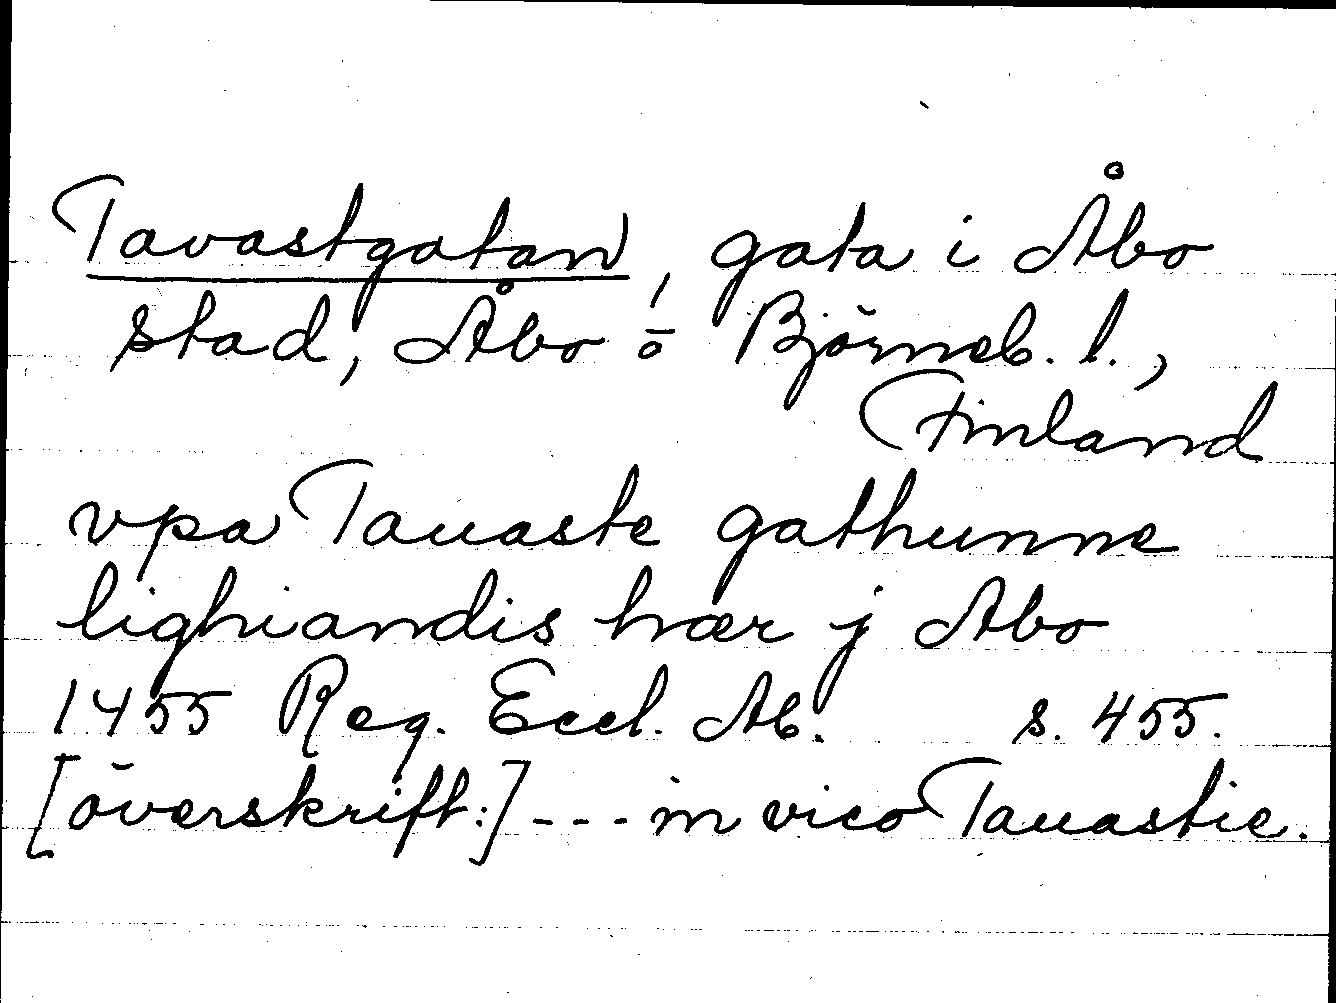 Tavastgatan, gata i Åbo
stad, Åbo o Björneb. l.,
Finland
vpa Tauaste gathunne
lighiandis hær j Abo
1455 Reg. Eccl. Ab. s. 455.
[överskrift:] --- in vico Tauastie.